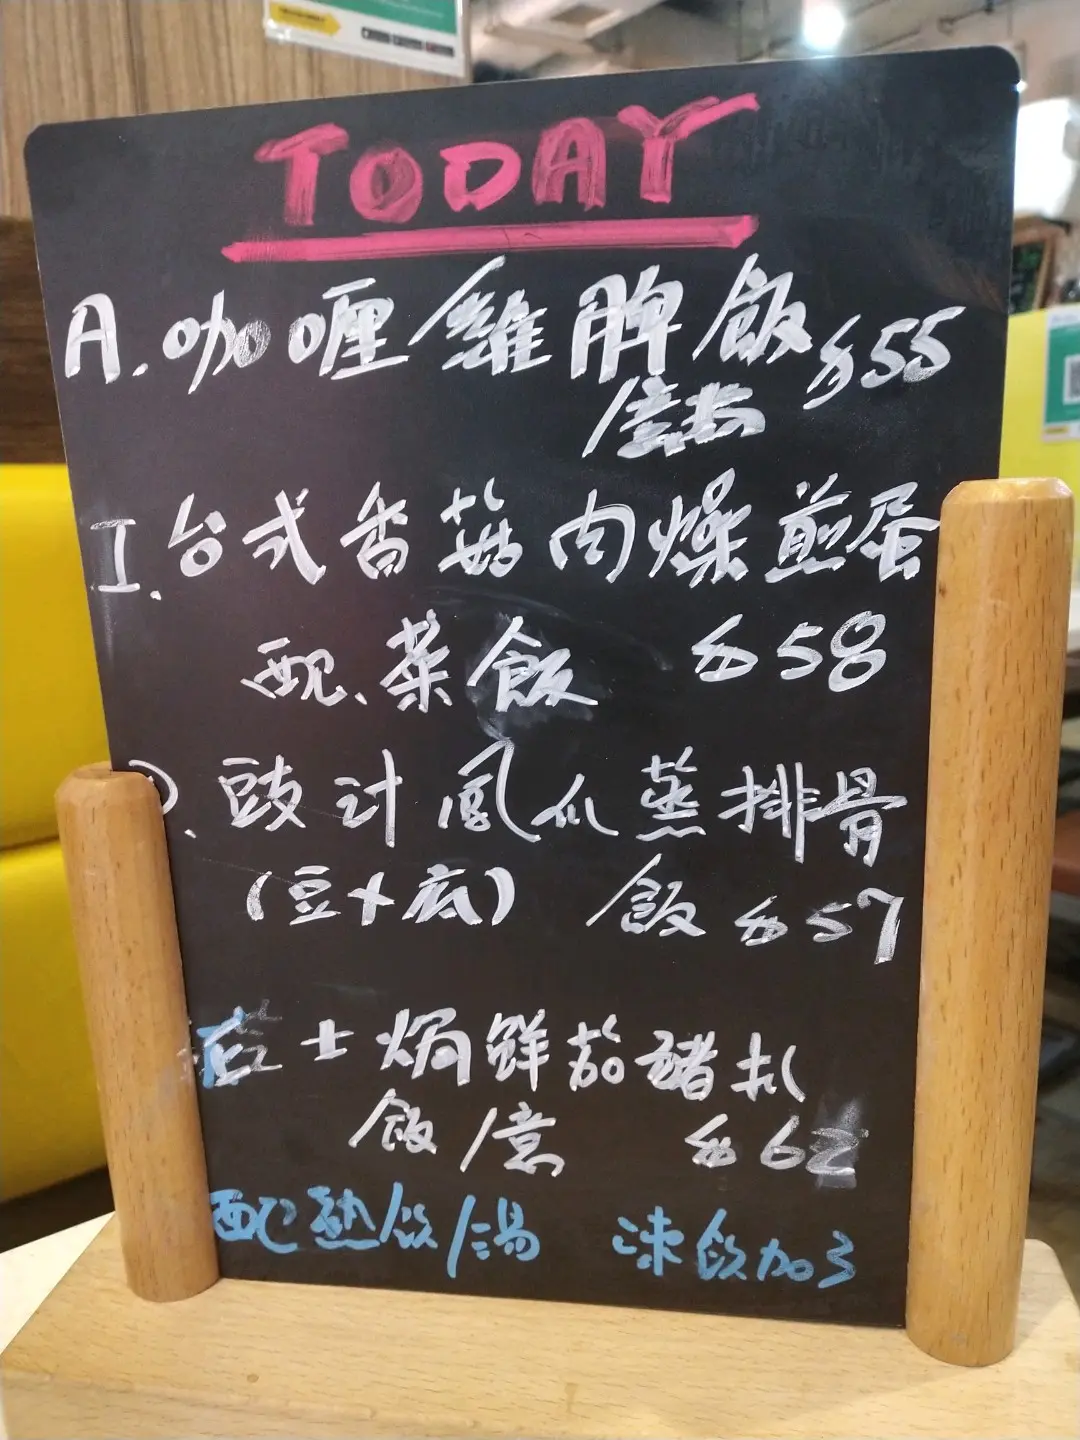 TODAY
A.咖喱雞脾飯 $55
/意粉
I.台式香菇肉燥煎蛋
配、菜飯 $58
豉汁鳳爪蒸排骨
(豆卜底) 飯 $57
芝士焗鮮茄豬扒
飯/意 $62
配熱飲/湯 凍飲加3